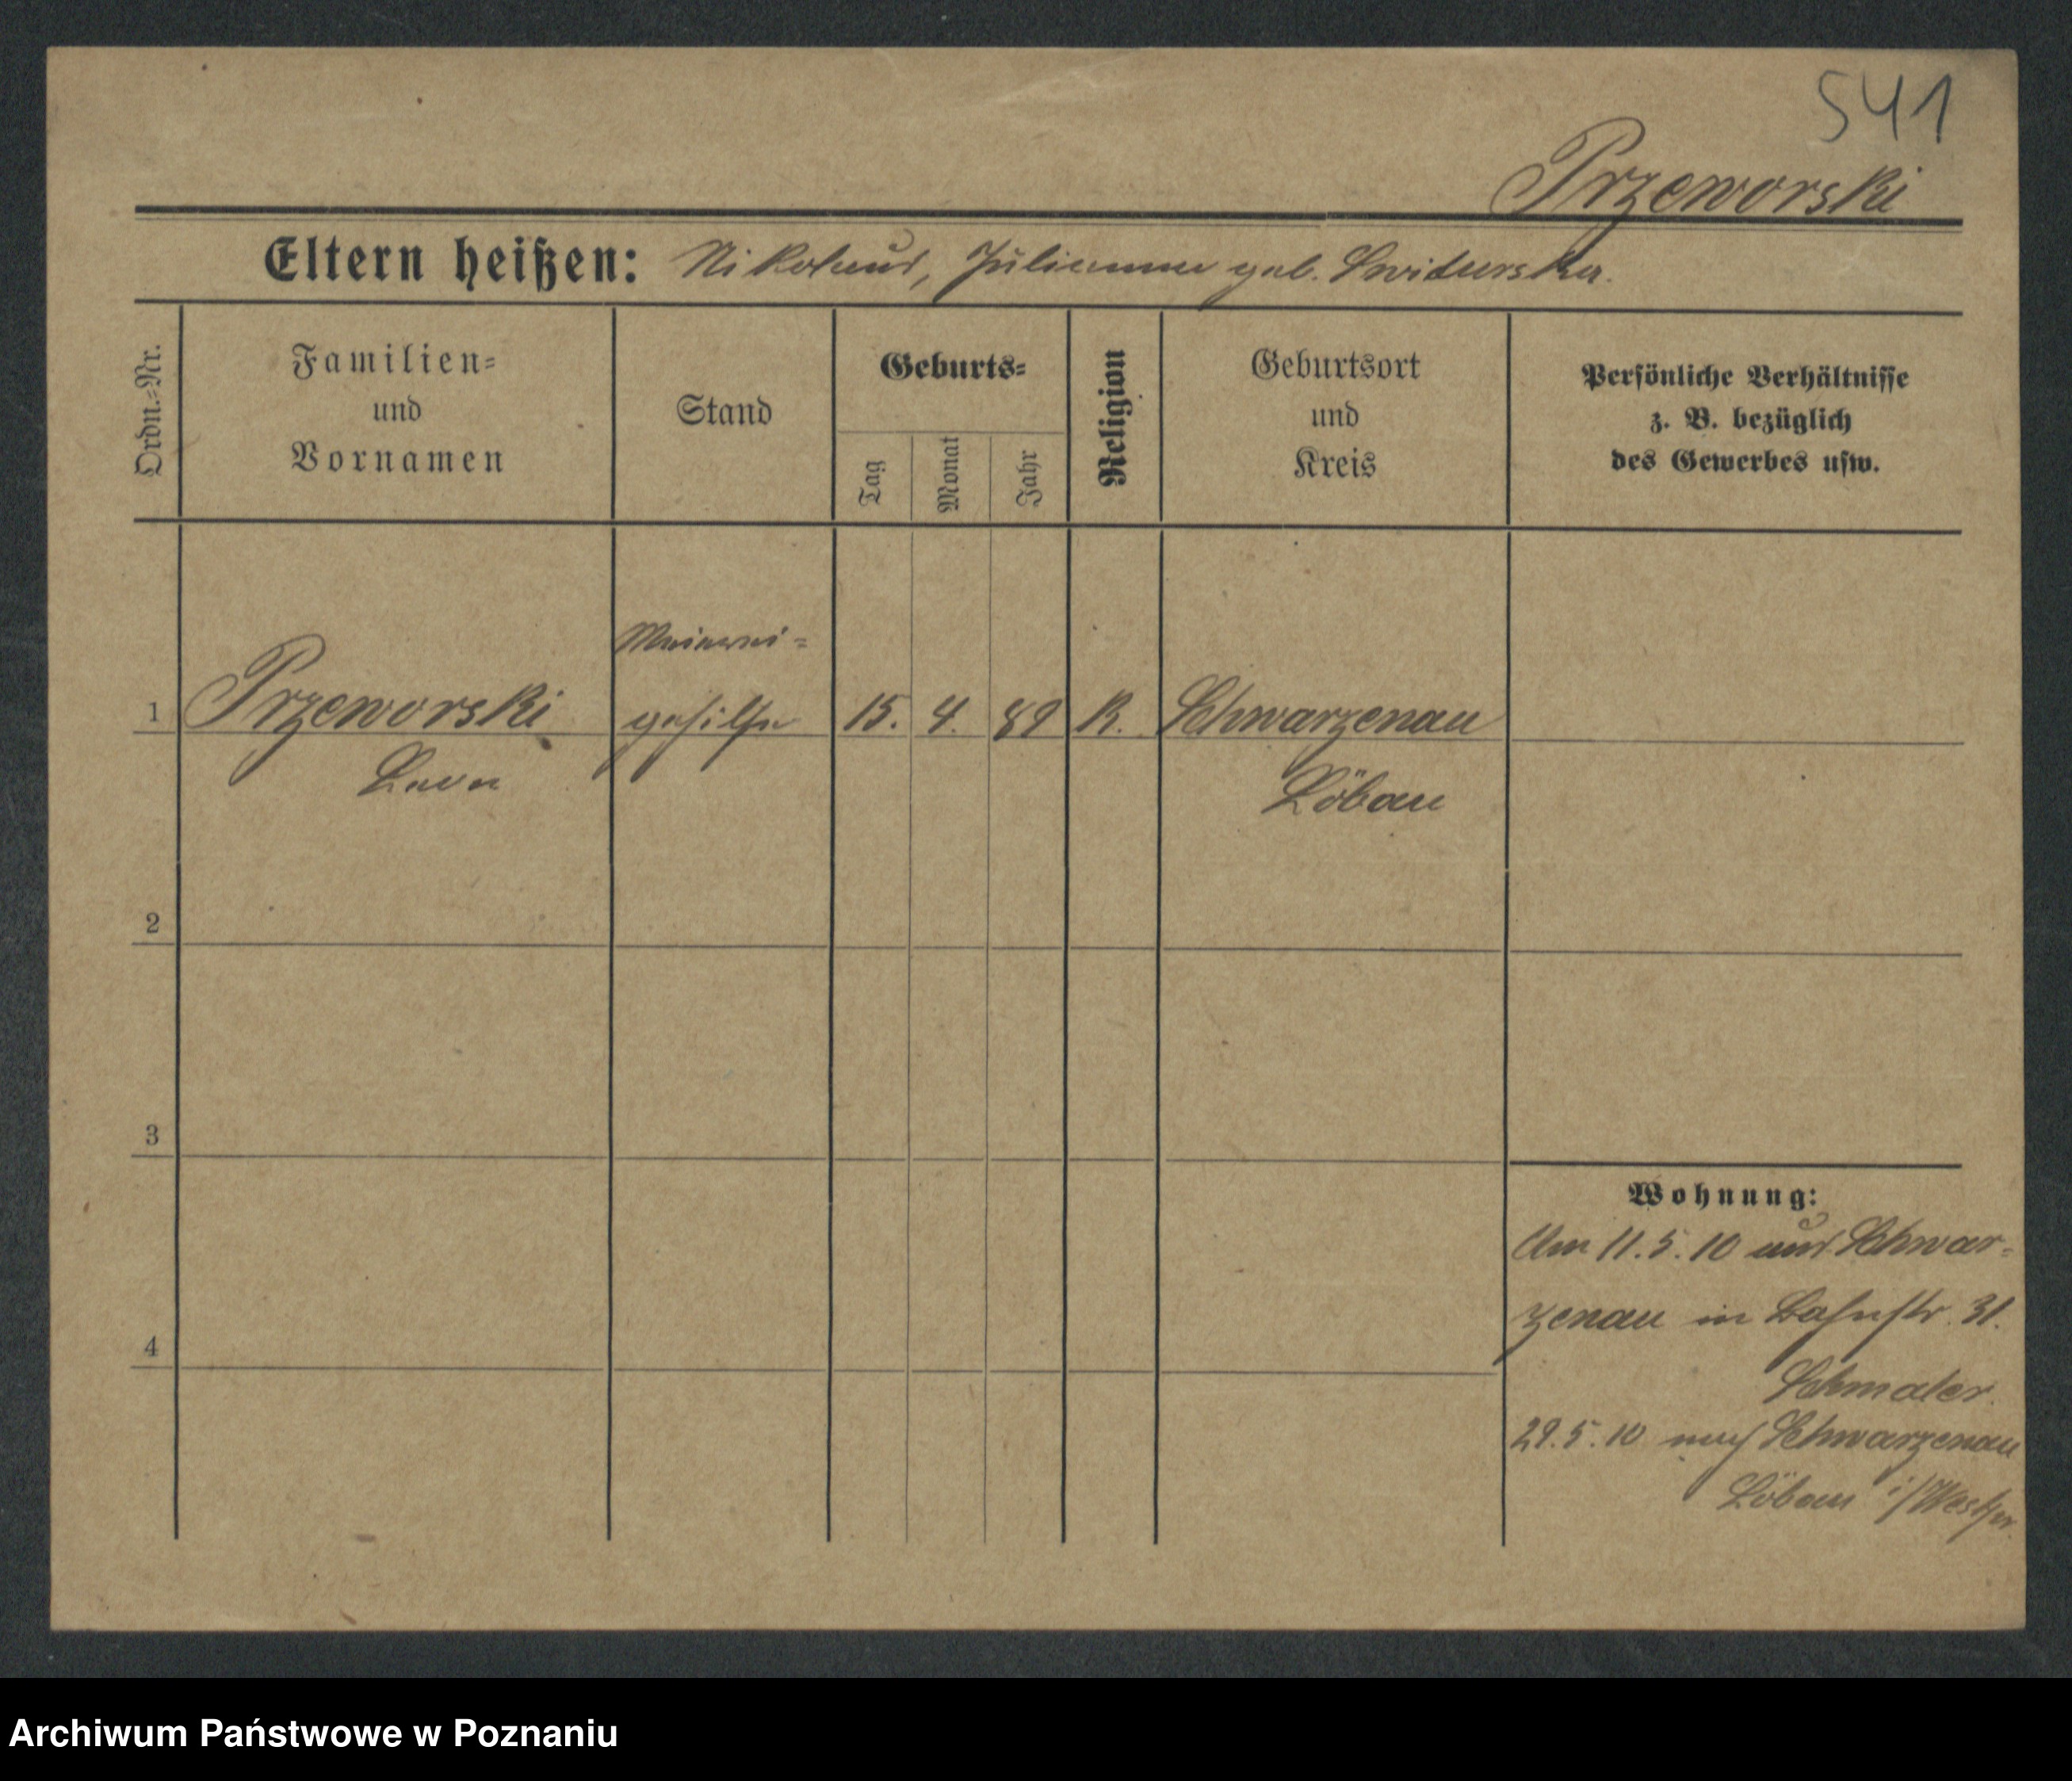 541
Przeworski
Eltern heißen: Nikolaus, Julianna geb. Swiderska.
Ordn.-Nr.
Familien-
und
Vornamen
Stand
Geburts-
Tag
Monat
Jahr
Religion
Geburtsort
und
Kreis
Persönliche Verhältnisse
z. B. bezüglich
des Gewerbes usw.
1 Przeworski gehilfe 15. 4. 89 R. Schwarzenau
Leon Löbau
2
3
4
Wohnung:
Am 11.5.10 aus Schwar-
zenau in Bahnstr. 31.
29.5.10 nach Schwarzenau
Löbau i/Westpr.
Archiwum Państwowe w Poznaniu